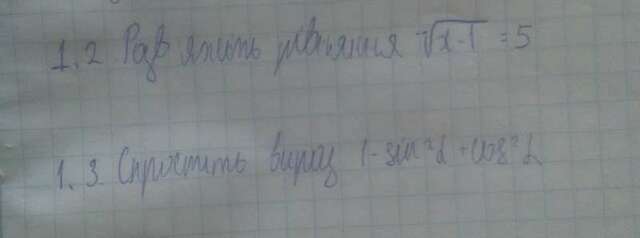 1.2 Розв'яжіть рівняння √x-1 = 5
1.3. Спростіть вираз 1-sin²α+cos²α